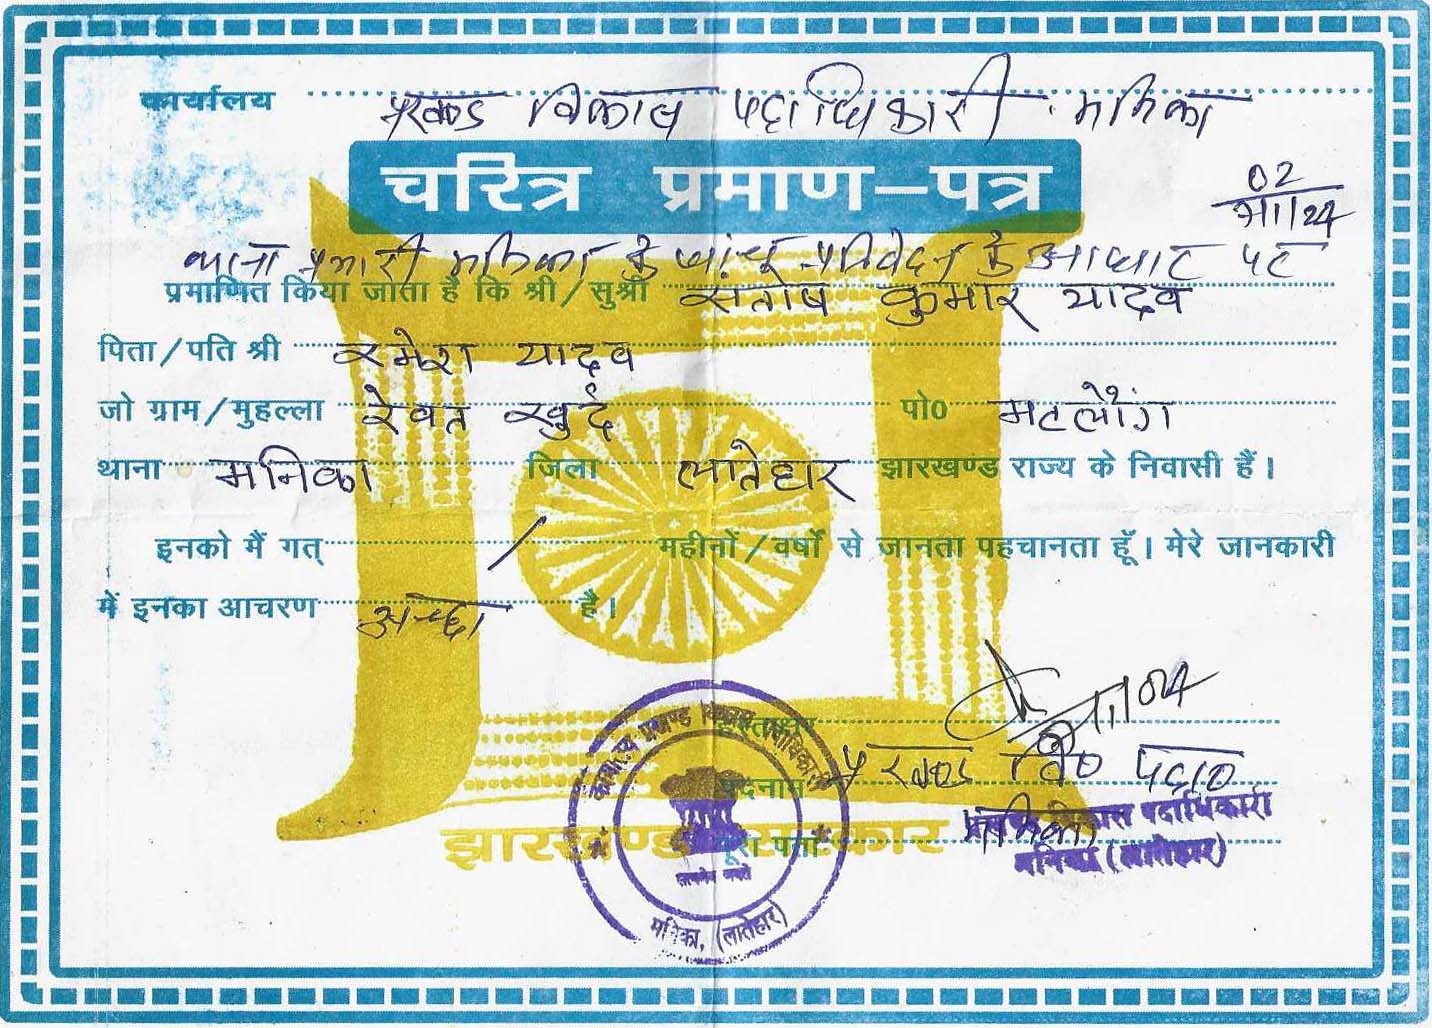 कार्यालय प्रखण्ड विकास पदाधिकारी मनिका
चरित्र प्रमाण-पत्र
02
थाना प्रभारी मनिका के जांच प्रतिवेदन के आधार पर
प्रमाणित किया जाता है कि श्री/सुश्री संतोष कुमार यादव
पिता/पति श्री रमेश यादव
जो ग्राम/मुहल्ला रेवत खुर्द पो0 मटलौंग
थाना मनिका जिला लातेहार झारखण्ड राज्य के निवासी हैं।
इनको मैं गत् महीनों/वर्षों से जानता पहचानता हूँ। मेरे जानकारी
में इनका आचरण अच्छा है।
हस्ताक्षर
पदनाम प्रखण्ड वि0 पदा0
पूरा पता मनिका
विकास पदाधिकारी
मनिका (लातेहार)
झारखण्ड सरकार
कार्यालय प्रखण्ड विकास पदाधिकारी
मनिका, (लातेहार)